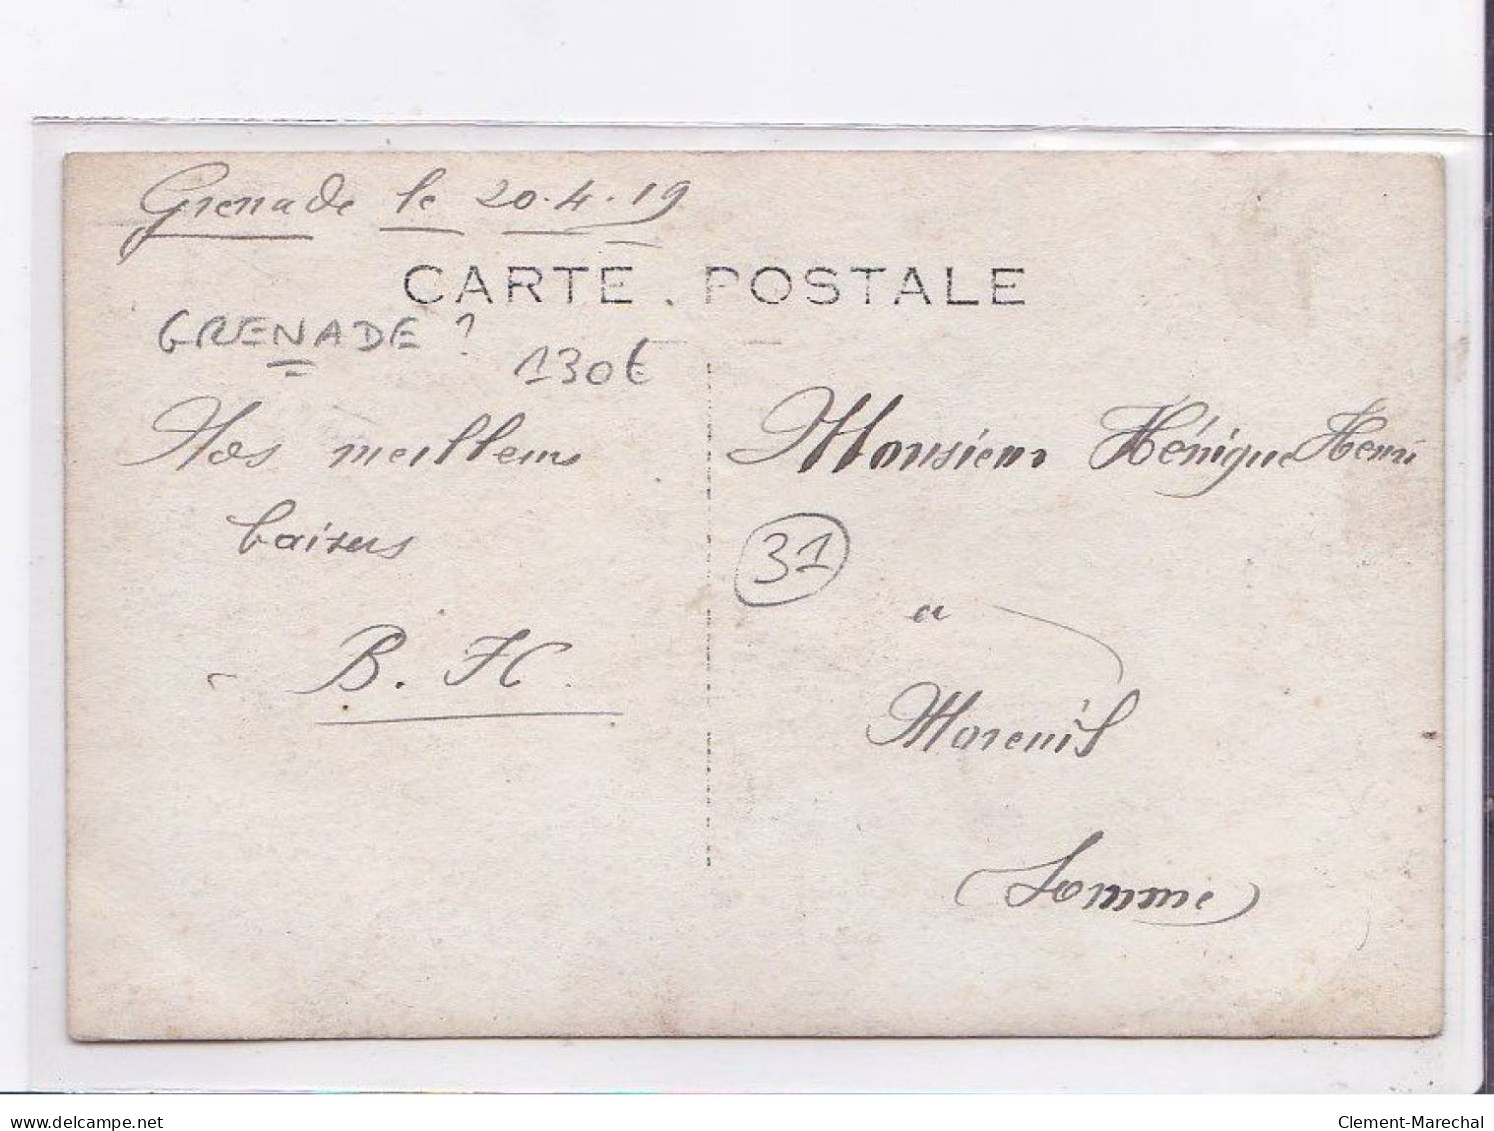 Grenade le 20.4.19
CARTE POSTALE
GRENADE ?
130€
Nos meilleurs
baisers
B. H
Monsieur Hénique Henri
31
a
Moreuil
Somme
www.delcampe.net
Clement-Marechal